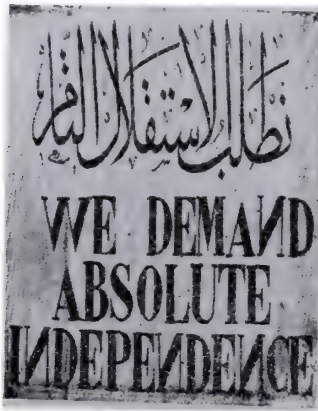 نطلب الاستقلال التام
WE DEMAND
ABSOLUTE
INDEPENDENCE